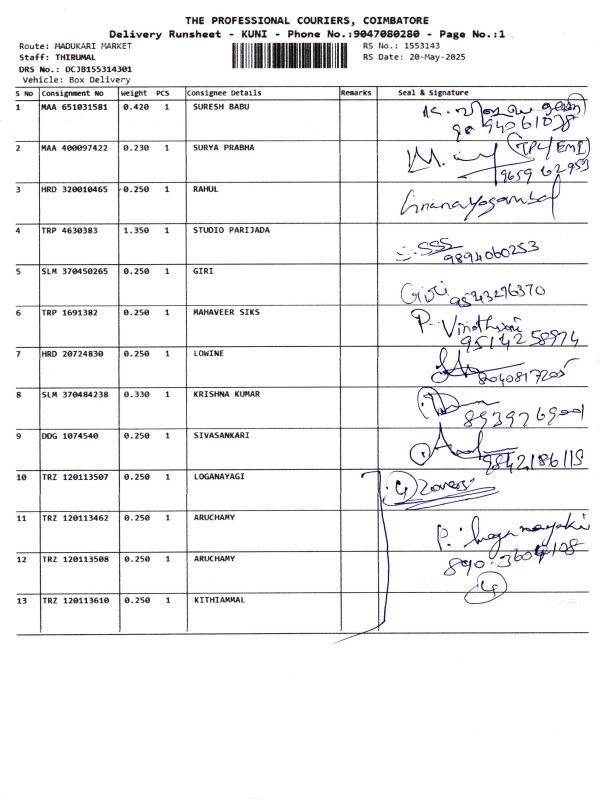 THE PROFESSIONAL COURIERS, COIMBATORE
Delivery Runsheet - KUNI - Phone No.:9047080280 - Page No.:1
Route: MADUKARI MARKET RS No.: 1553143
Staff: THIRUMAL RS Date: 20-May-2025
DRS No.: DCJB155314301
Vehicle: Box Delivery
S No Consignment No Weight PCS Consignee Details Remarks Seal & Signature
1 MAA 651031581 0.420 1 SURESH BABU
2 MAA 400097422 0.230 1 SURYA PRABHA
9659 62953
3 HRD 320010465 0.250 1 RAHUL
4 TRP 4630383 1.350 1 STUDIO PARIJADA
9894060253
5 SLM 370450265 0.250 1 GIRI
Giri 9543276370
6 TRP 1691382 0.250 1 MAHAVEER SIKS
P. Vinothini
9514258974
7 HRD 20724830 0.250 1 LOWINE
8040817205
8 SLM 370484238 0.330 1 KRISHNA KUMAR
8939769001
9 DDG 1074540 0.250 1 SIVASANKARI
9842186115
10 TRZ 120113507 0.250 1 LOGANAYAGI
4
11 TRZ 120113462 0.250 1 ARUCHAMY
P. Loganayaki
12 TRZ 120113508 0.250 1 ARUCHAMY
4
13 TRZ 120113610 0.250 1 KITHIAMMAL